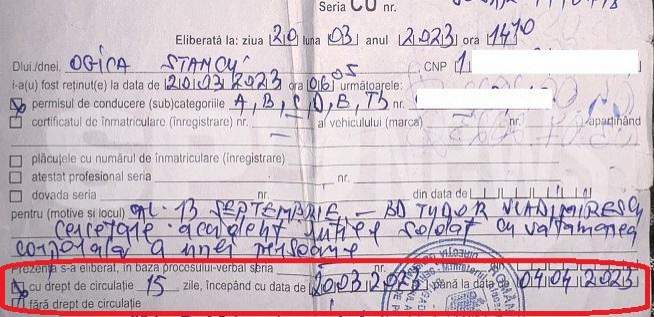 Seria CU nr.
Eliberată la: ziua 20 luna 03 anul 2023 ora 1410
Dlui./dnei. OGICA STANCU , CNP 1
i-a(u) fost reținut(e) la data de 20 03 2023 ora 06 05 următoarele:
permisul de conducere (sub)categoriile A, B, C, D, E, Tb nr.
certificatul de înmatriculare (înregistrare) nr. al vehiculului (marca) nr. aparținând
plăcuțele cu numărul de înmatriculare (înregistrare)
atestat profesional seria nr.
dovada seria nr. din data de
pentru (motive si locul) 13 SEPTEMBRIE, - BD TUDOR VLADIMIRESCU
cercetare accident rutier soldat cu vatamarea
corporala a unei persoane
Prezenta s-a eliberat, în baza procesului-verbal seria nr.
cu drept de circulație 15 zile, începând cu data de 20 03 2023 până la data 04 04 2023
fără drept de circulație